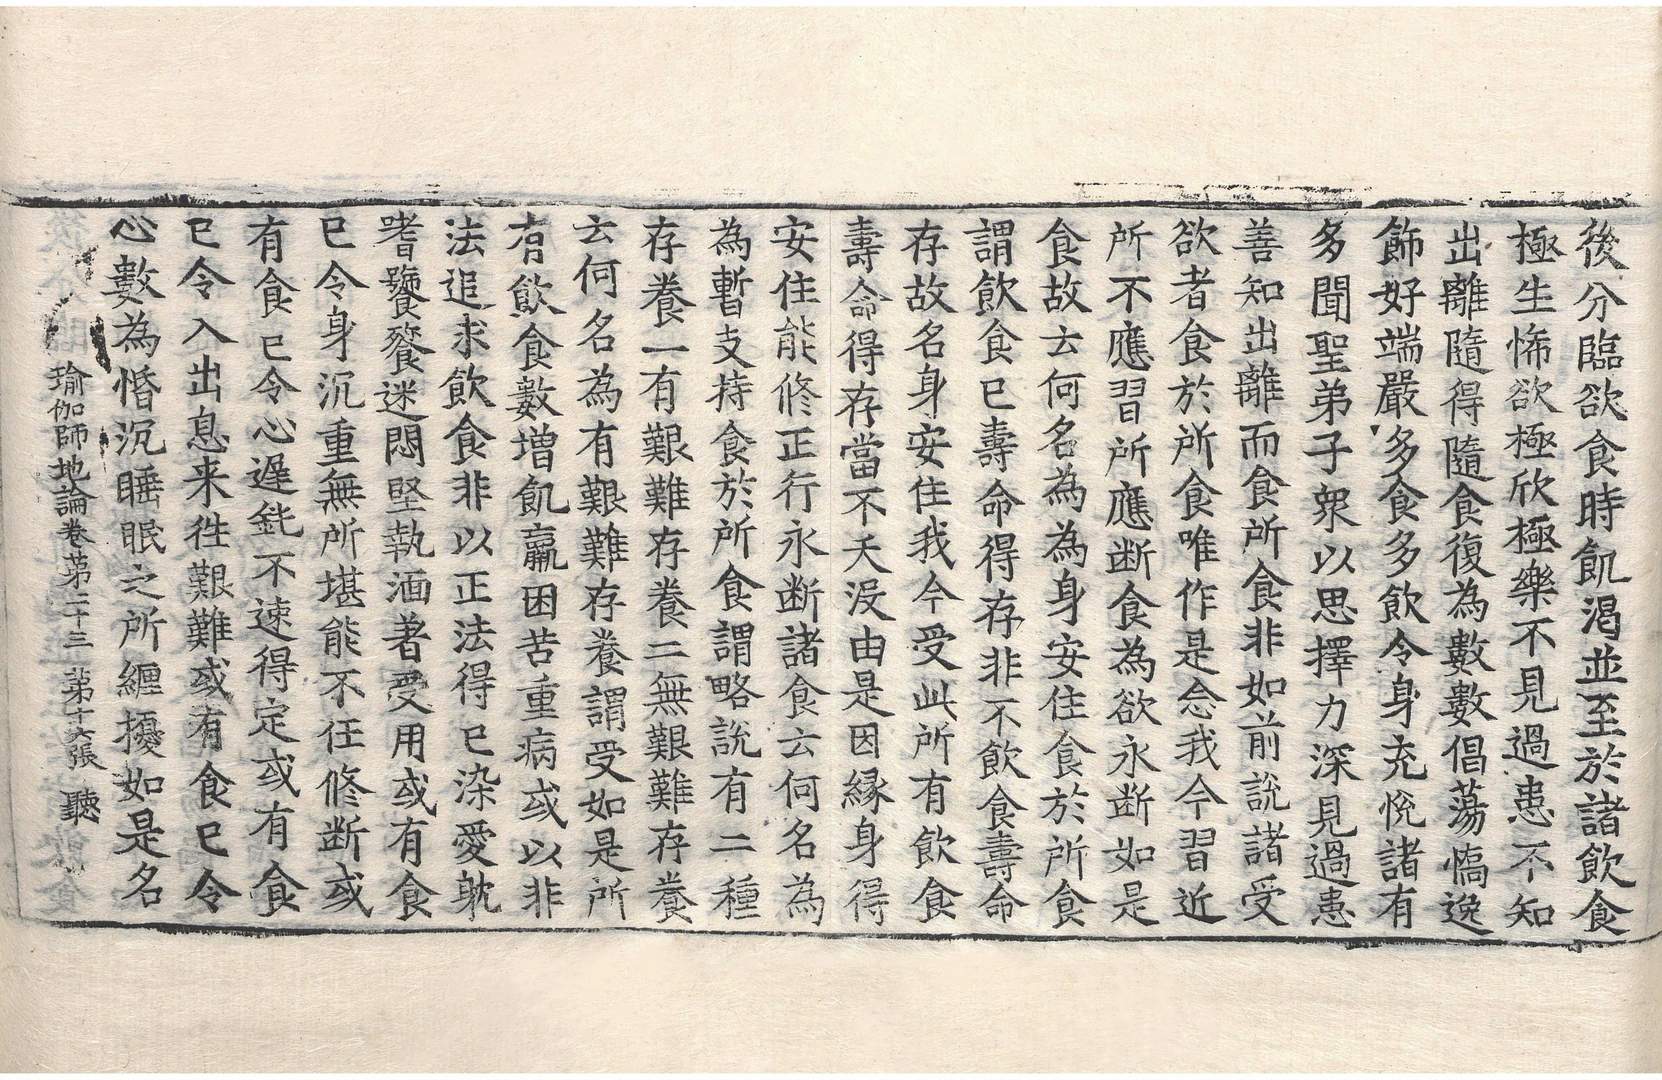 後分臨欲食時飢渴並至於諸飲食
極生怖欲極欣極樂不見過患不知
出離隨得隨食復為數數倡蕩憍逸
飾好端嚴多食多飲令身充悅諸有
多聞聖弟子衆以思擇力深見過患
善知出離而食所食非如前說諸受
欲者食於所食唯作是念我今習近
所不應習所應断食為欲永断如是
食故云何名為為身安住食於所食
謂飲食已壽命得存非不飲食壽命
存故名身安住我今受此所有飲食
壽命得存當不夭没由是因緣身得
安住能修正行永断諸食云何名為
為暫支持食於所食謂略說有二種
存養一有艱難存養二無艱難存養
云何名為有艱難存養謂受如是所
有飲食數增飢羸困苦重病或以非
法追求飲食非以正法得已染愛躭
嗜饕餮迷悶堅執湎著受用或有食
已令身沉重無所堪能不任修断或
有食已令心遲鈍不速得定或有食
已令入出息来徃艱難或有食已令
心數為惛沉睡眠之所纏擾如是名
瑜伽師地論卷苐二十三 苐十六張 聽